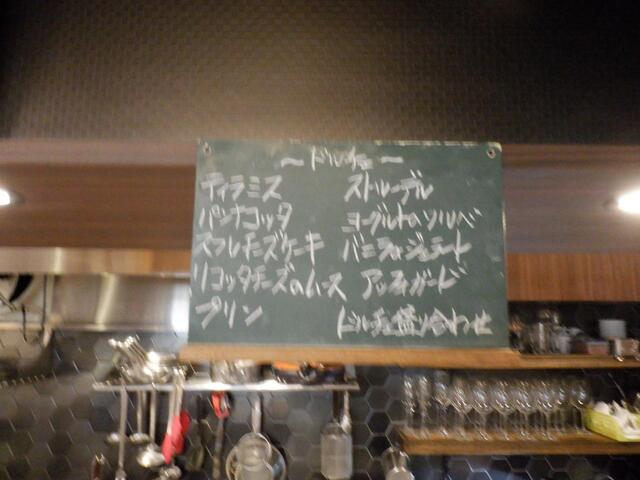 ～ドルチェ～
ティラミス
パンナコッタ
スフレチーズケーキ
リコッタチーズのムース
プリン
ストルーデル
ヨーグルトのソルベ
バニラのジェラート
アッフォガード
ドルチェ盛り合わせ